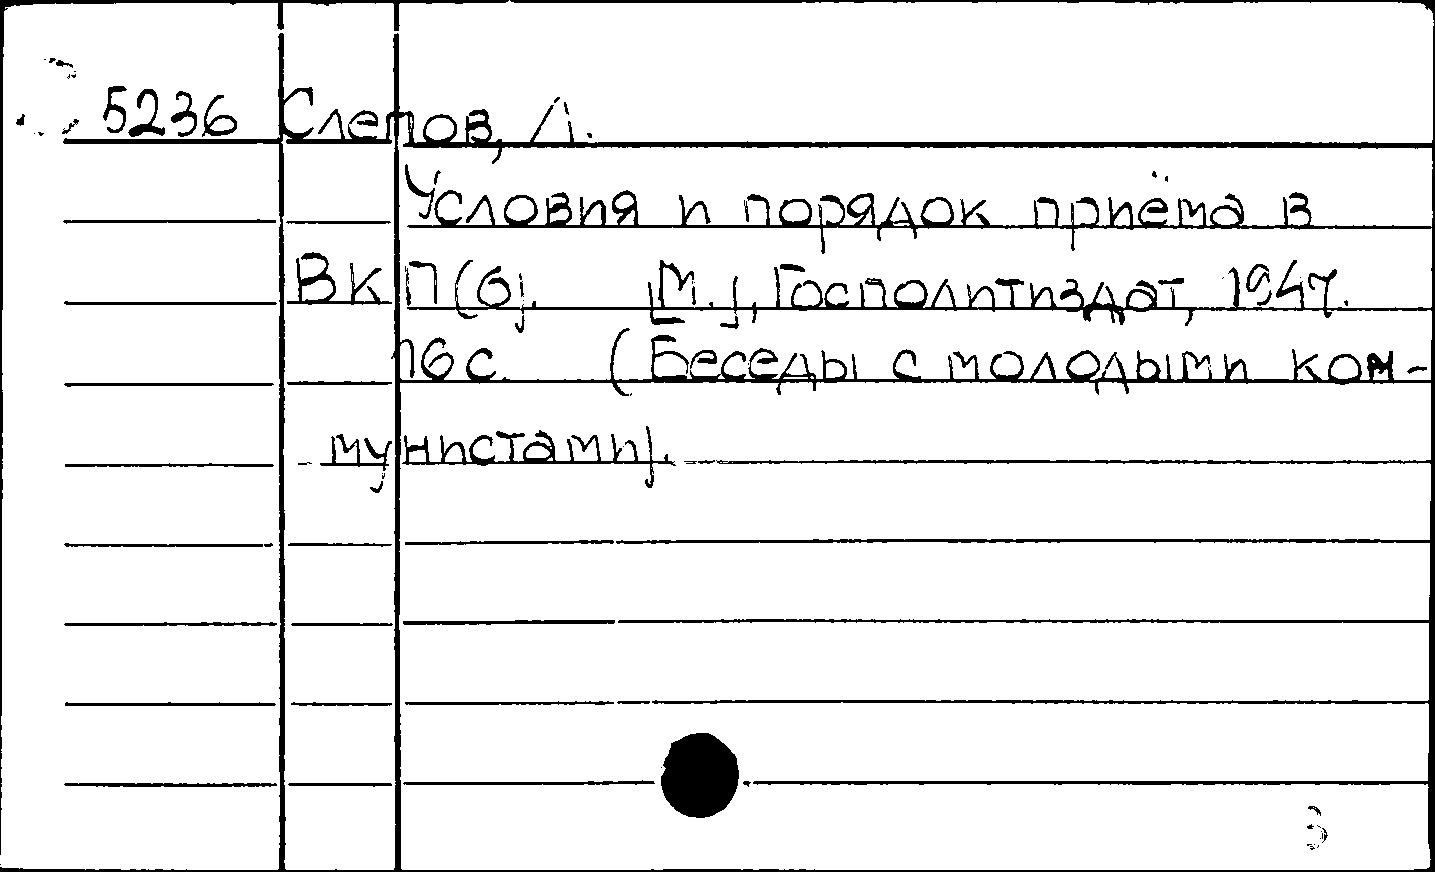 5236 Слепов, Л.
Условия и порядок приёма в
ВКП(б). [М.], Госполитиздат, 1947.
16 с. (Беседы с молодыми ком-
мунистами).